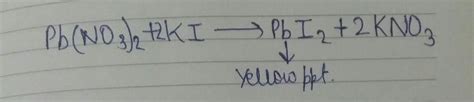 Pb(NO₃)₂+2KI ⟶ PbI₂ + 2KNO₃
↓
yellow ppt.